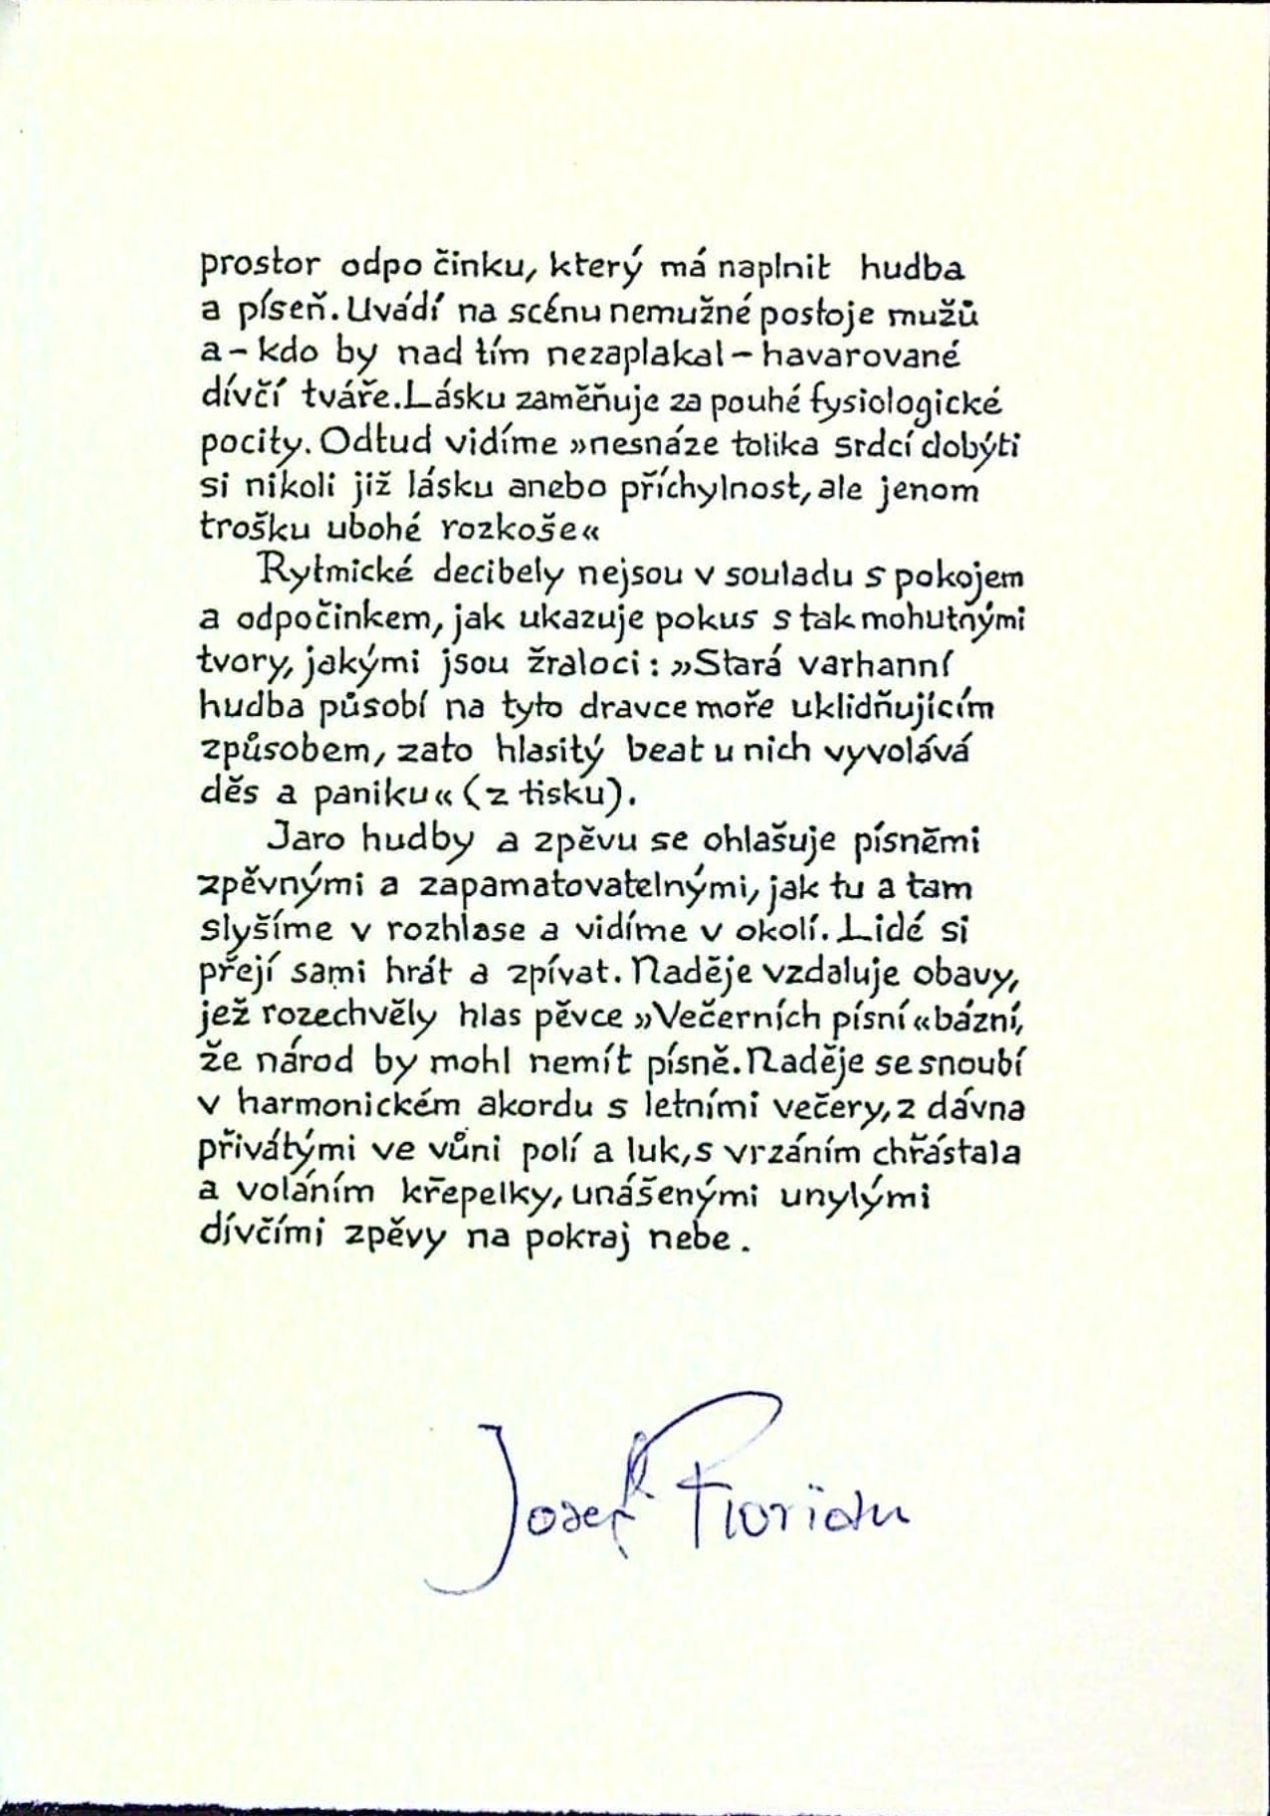 prostor odpočinku, který má naplnit hudba
a píseň. Uvádí na scénu nemužné postoje mužů
a - kdo by nad tím nezaplakal - havarované
dívčí tváře. Lásku zaměňuje za pouhé fysiologické
pocity. Odtud vidíme »nesnáze tolika srdcí dobýti
si nikoli již lásku anebo příchylnost, ale jenom
trošku ubohé rozkoše«
Rytmické decibely nejsou v souladu s pokojem
a odpočinkem, jak ukazuje pokus s tak mohutnými
tvory, jakými jsou žraloci: »Stará varhanní
hudba působí na tyto dravce moře uklidňujícím
způsobem, zato hlasitý beat u nich vyvolává
děs a paniku« (z tisku).
Jaro hudby a zpěvu se ohlašuje písněmi
zpěvnými a zapamatovatelnými, jak tu a tam
slyšíme v rozhlase a vidíme v okolí. Lidé si
přejí sami hrát a zpívat. Naděje vzdaluje obavy,
jež rozechvěly hlas pěvce »Večerních písní« bázní,
že národ by mohl nemít písně. Naděje se snoubí
v harmonickém akordu s letními večery, z dávna
přivátými ve vůni polí a luk, s vrzáním chřástala
a voláním křepelky, unášenými unylými
dívčími zpěvy na pokraj nebe.
Josef Florian